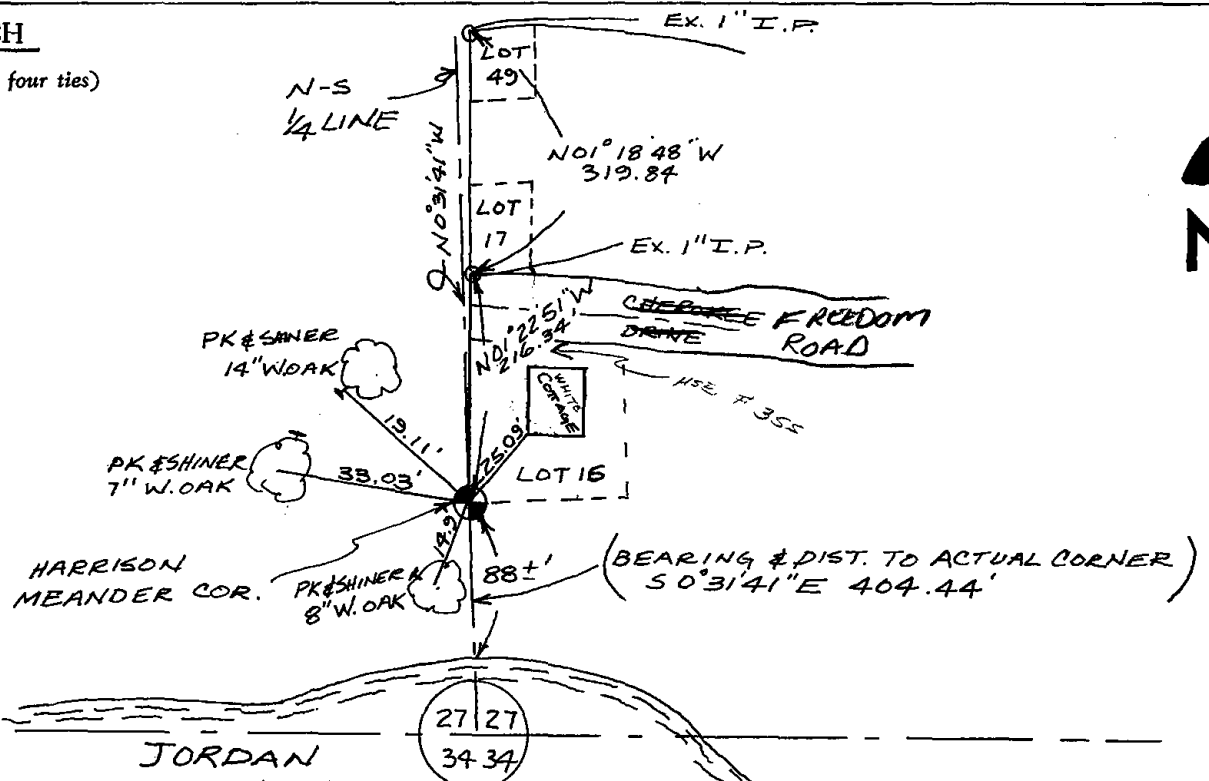 CH
four ties)
Ex. 1" I.P.
LOT
49
N-S
1/4 LINE
N01°18'48"W
319.84
N0°31'41"W
LOT
17
Ex. 1" I.P.
CHEROKEE FREEDOM
DRIVE ROAD
N01°22'51"W
216.34'
HSE # 355
PK & SHNER
14" W.OAK
WHITE
COTTAGE
19.11'
25.09'
PK & SHINER
7" W. OAK
33.03'
LOT 16
HARRISON
MEANDER COR.
PK & SHINER
8" W. OAK
88±'
(BEARING & DIST. TO ACTUAL CORNER
S 0°31'41"E 404.44')
27 27
34 34
JORDAN
N